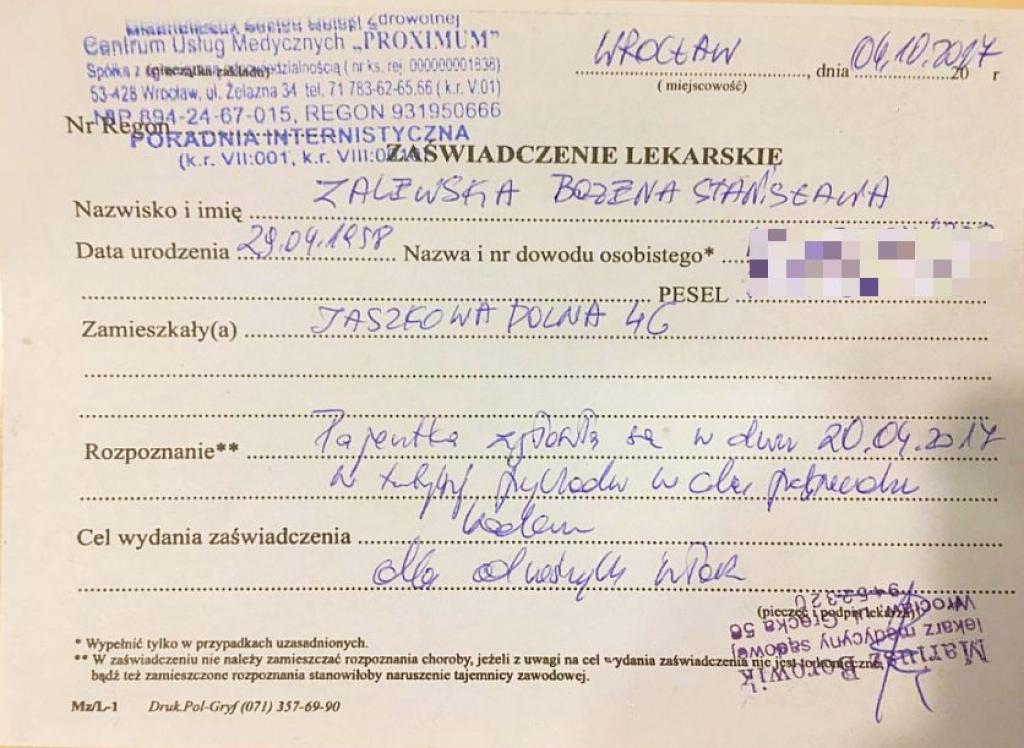 Zdrowotnej
Centrum Usług Medycznych „PROXIMUM”
Spółka z (pieczątka zakładu) odpowiedzialnością (nr ks. rej. 000000001838)
53-428 Wrocław, ul. Żelazna 34 tel. 71 783-62-65,66 (k.r. V:01)
NIP 894-24-67-015, REGON 931950666
Nr Regon
PORADNIA INTERNISTYCZNA
(k.r. VII:001, k.r. VIII:
WROCŁAW, dnia 04.10.2017 r
(miejscowość)
ZAŚWIADCZENIE LEKARSKIE
Nazwisko i imię ZALEWSKA BOŻENA STANISŁAWA
Data urodzenia 29.04.1958 Nazwa i nr dowodu osobistego*
PESEL
Zamieszkały(a) JASZKOWA DOLNA 4G
Rozpoznanie** Pacjentka zgłosiła się w dniu 20.04.2017
w tutejszej przychodni w celu
Cel wydania zaświadczenia
dla władz
(pieczęć i podpis lekarza)
Mariusz Borowik
lekarz medycyny sądowej
Wrocław ul. Grącka 50
* Wypełnić tylko w przypadkach uzasadnionych.
** W zaświadczeniu nie należy zamieszczać rozpoznania choroby, jeżeli z uwagi na cel wydania zaświadczenia nie jest to konieczne,
bądź też zamieszczone rozpoznania stanowiłoby naruszenie tajemnicy zawodowej.
Mz/L-1 Druk.Pol-Gryf (071) 357-69-90